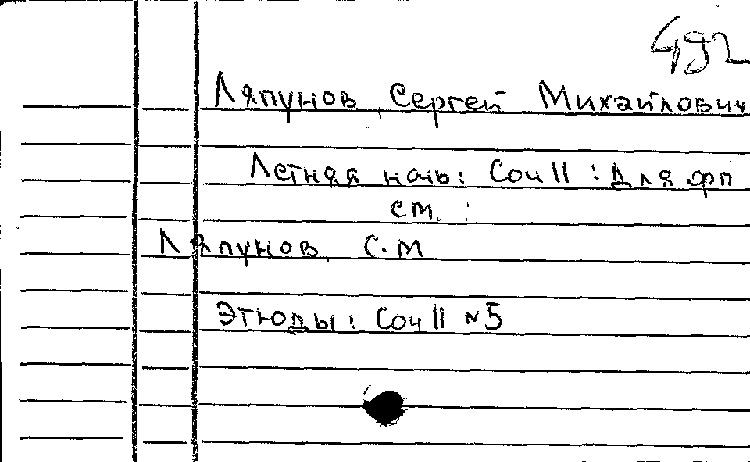 492
Ляпунов, Сергей Михайлович
Летняя ночь: Соч 11 : Для фп
см. :
Ляпунов, С. М
Этюды: Соч 11 № 5